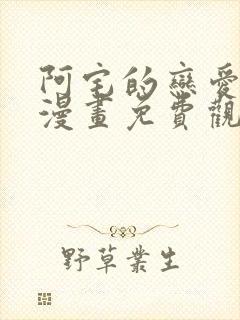 阿宅的戀愛
漫畫免費觀
野草叢生